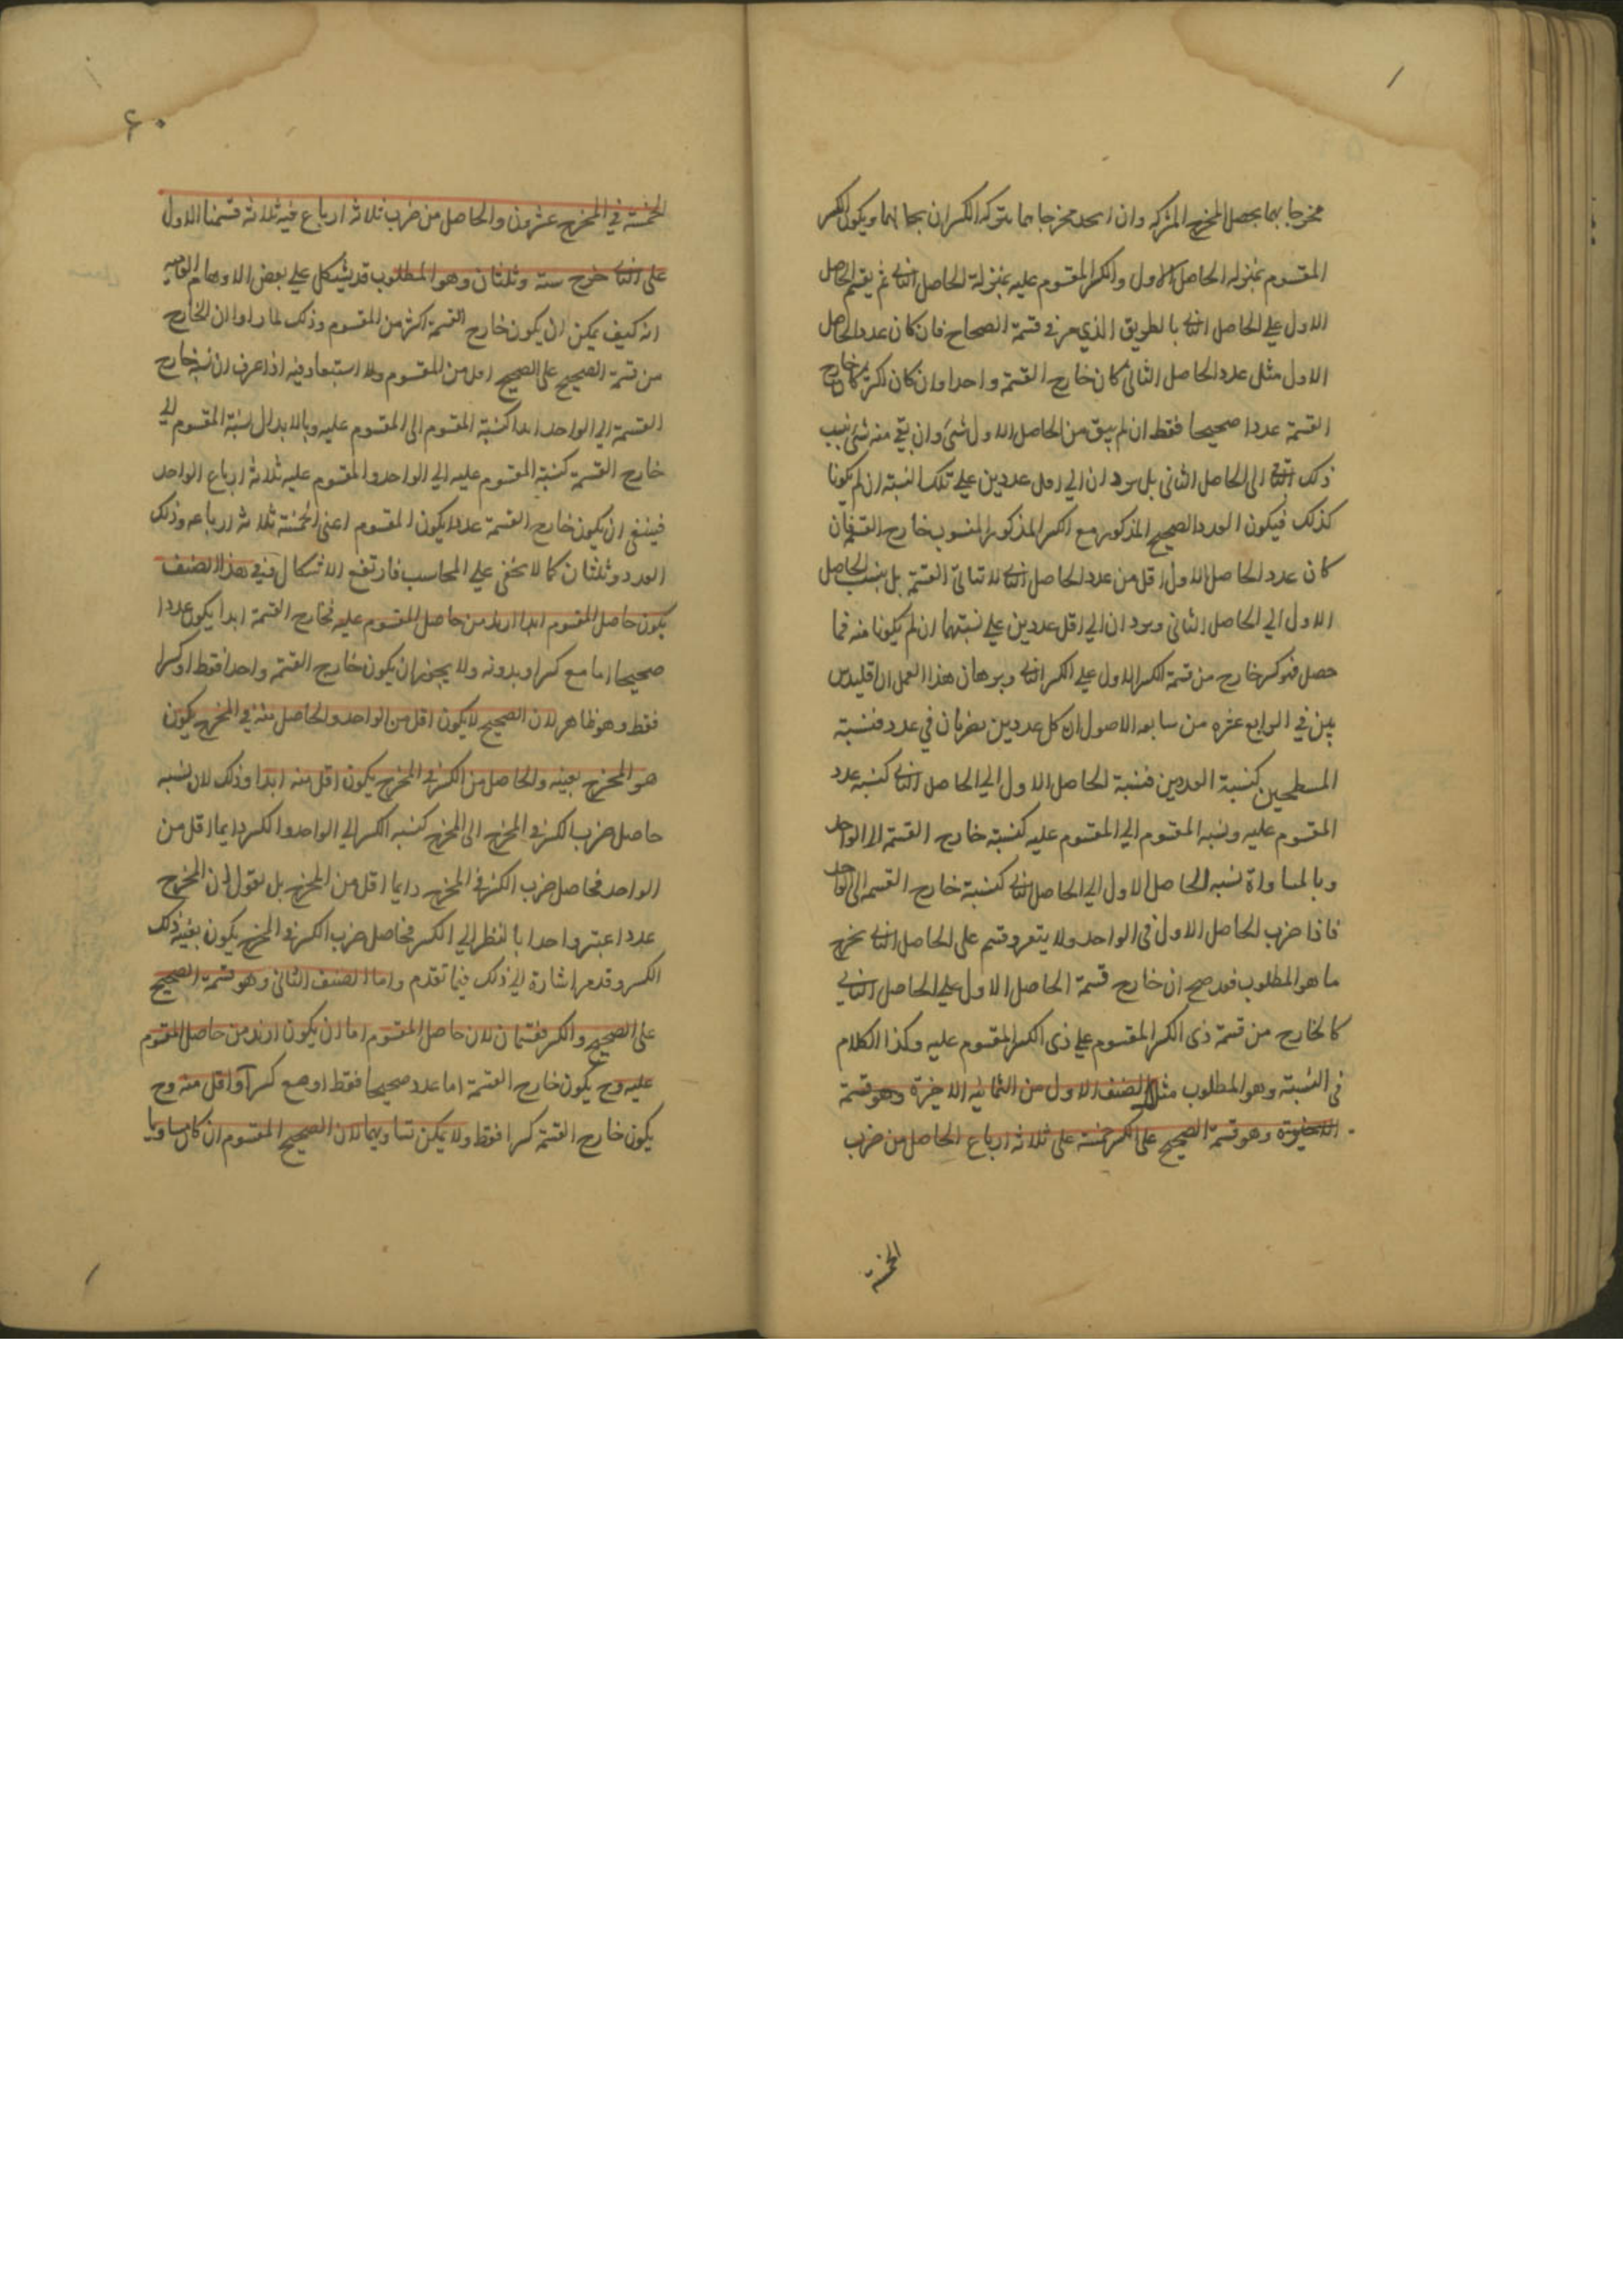 مخرجا بهما يحصل المخرج المشترك وان اتحد مخرجاهما يترك الكسران بحالهما ويكون الكسر
المقسوم بمنزله الحاصل الاول والكسر المقسوم عليه بمنزلة الحاصل الثاني ثم يقسم الحاصل
الاول علي الحاصل الثاني بالطريق الذي مر في قسمة الصحاح فان كان عدد الحاصل
الاول مثل عدد الحاصل الثاني كان خارج القسمة واحدا وان كان اكثر كان خارج
القسمة عددا صحيحا فقط ان لم يبق من الحاصل الاول شئ وان بقي منه شئ نسب
ذلك الباقي الى الحاصل الثاني بل يردان الي اقل عددين علي تلك النسبة ان لم يكونا
كذلك فيكون العدد الصحيح المذكور مع الكسر المذكور المنسوب خارج القسمة فان
كان عدد الحاصل الاول اقل من عدد الحاصل الثاني لا تتاتى القسمة بل ينسب الحاصل
الاول الي الحاصل الثاني ويردان الي اقل عددين علي نسبتهما ان لم يكونا منه فما
حصل فهو كسر خارج من قسمة الكسر الاول علي الكسر الثاني وبرهان هذا العمل ان اقليدس
بين في الرابع عشره من سابعه الاصول ان كل عددين يضربان في عدد فنسبة
المسطحين كنسبة العددين فنسبة الحاصل الاول الي الحاصل الثاني كنسبه عدد
المقسوم عليه ونسبه المقسوم الي المقسوم عليه كنسبة خارج القسمة الا الواحد
وبالمساواة نسبه الحاصل الاول الي الحاصل الثاني كنسبة خارج القسمه الى الواحد
فاذا ضرب الحاصل الاول في الواحد ولا يتغير وقسم على الحاصل الثاني يخرج
ما هو المطلوب فقد صح ان خارج قسمة الحاصل الاول علي الحاصل الثاني
كالخارج من قسمة ذى الكسر المقسوم علي ذى الكسر المقسوم عليه وكذا الكلام
في النسبة وهو المطلوب مثل الصنف الاول من الثمانيه الاخيرة وهو قسمة
الاخيرة وهو قسمة الصحيح على الكسر خمسة على ثلاثه ارباع الحاصل من ضرب
الخمسة
٦٠
الخمسة في المخرج عشرون والحاصل من ضرب ثلاثه ارباع فيه ثلاثه قسمنا الاول
على الثاني خرج ستة وثلثان وهو المطلوب قد يشكل علي بعض الاوهام القاصره
انه كيف يمكن ان يكون خارج القسمة اكثر من المقسوم وذلك لما راوا ان الخارج
من قسمة الصحيح على الصحيح اقل من المقسوم ولا استبعاد فيه اذا عرف ان نسبة خارج
القسمة الي الواحد ابدا كنسبة المقسوم الى المقسوم عليه وبالابدال نسبة المقسوم الي
خارج القسمة كنسبة المقسوم عليه الي الواحد والمقسوم عليه ثلاثه ارباع الواحد
فينبغي ان يكون خارج القسمة عددا يكون المقسوم اعني الخمسة ثلاثه ارباعه وذلك
العدد وثلثان كما لا يخفى علي المحاسب فارتفع الاشكال ففي هذا الصنف
يكون حاصل المقسوم ابدا ازيد من حاصل المقسوم عليه فخارج القسمة ابدا يكون عددا
صحيحا اما مع كسر او بدونه ولا يجوز ان يكون خارج القسمة واحدا فقط او كسرا
فقط وهو ظاهر لان الصحيح لا يكون اقل من الواحد والحاصل منه في المخرج يكون
هو المخرج بعينه والحاصل من الكسر في المخرج يكون اقل منه ابدا وذلك لان نسبه
حاصل ضرب الكسر في المخرج الى المخرج كنسبه الكسر الي الواحد والكسر دايما اقل من
الواحد فحاصل ضرب الكسر في المخرج دايما اقل من المخرج بل نقول ان المخرج
عدد اعتبر واحدا بالنظر الي الكسر فحاصل ضرب الكسر في المخرج يكون بعينه ذلك
الكسر وقد مر اشارة الي ذلك فيما تقدم واما الصنف الثاني وهو قسمة الصحيح
على الصحيح والكسر فقسمان لان حاصل المقسوم اما ان يكون ازيد من حاصل المقسوم
عليه وح يكون خارج القسمة اما عدد صحيحا فقط او مع كسر او اقل منه وح
يكون خارج القسمة كسرا فقط ولا يمكن تساويهما لان الصحيح المقسوم ان كان مساويا